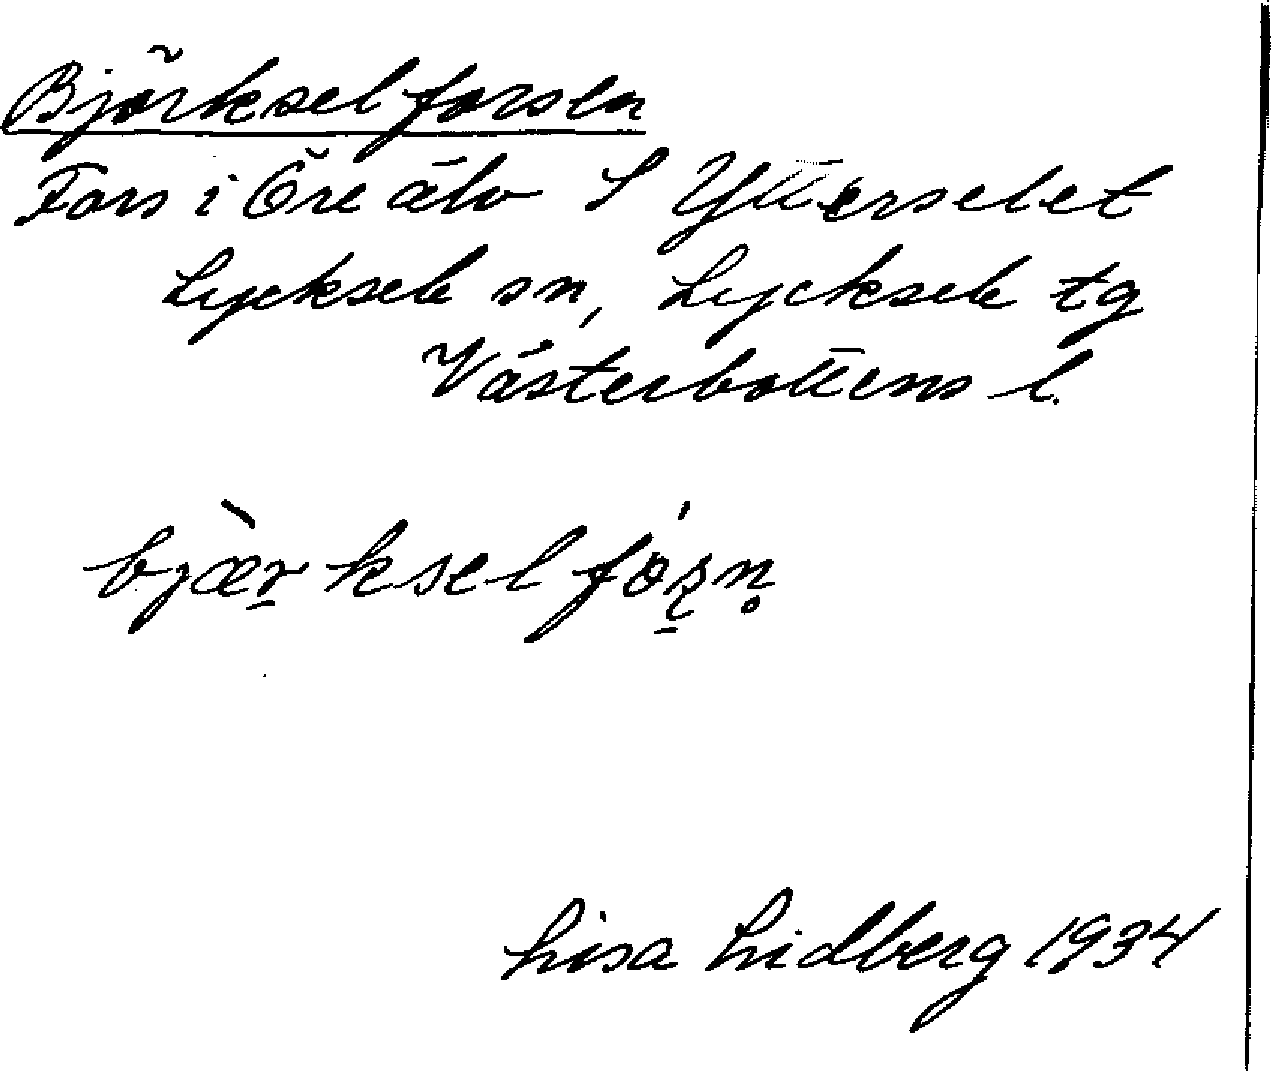 Björkselforsen
Fors i Öre älv S Ytterselet
Lycksele sn, Lycksele tg
Västerbottens l.
bjæ̀r̠kselfórs̠n̥
Lisa Lidberg 1934